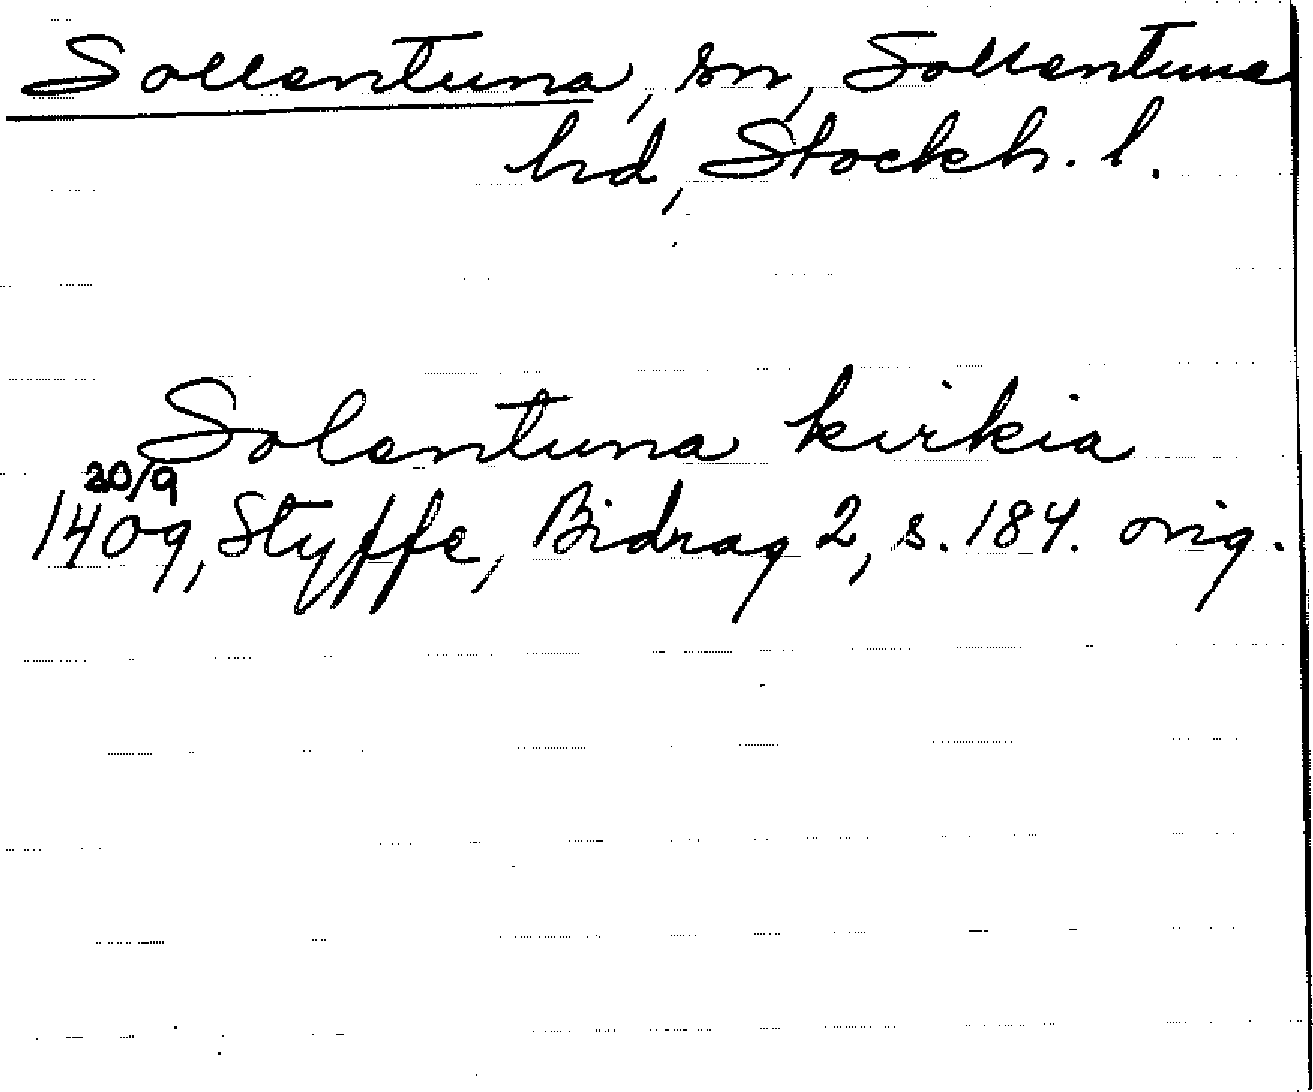 Sollentuna, sn, Sollentuna
hd, Stockh. l.
Solentuna kirkia
20/9
1409, Styffe, Bidrag 2, s. 184. orig.